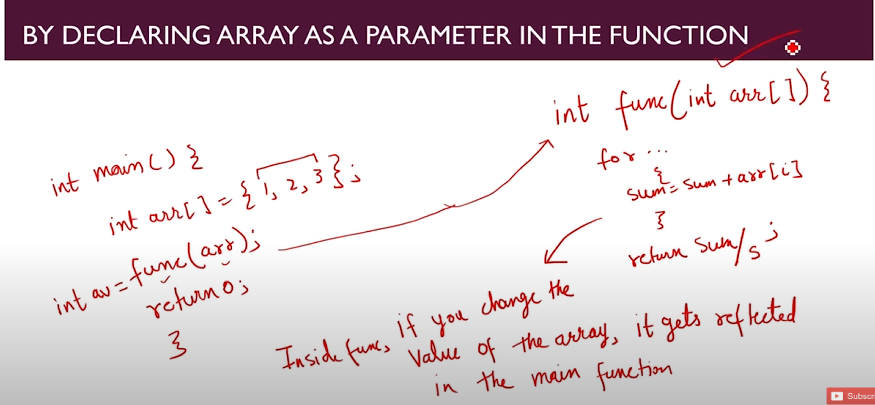 BY DECLARING ARRAY AS A PARAMETER IN THE FUNCTION
int main() {
int arr[] = {1, 2, 3};
int av = func(arr);
return 0;
}
int func(int arr[]) {
for ...
{
sum = sum + arr[i]
}
return sum/5;
Inside func, if you change the
value of the array, it gets reflected
in the main function
Subscr